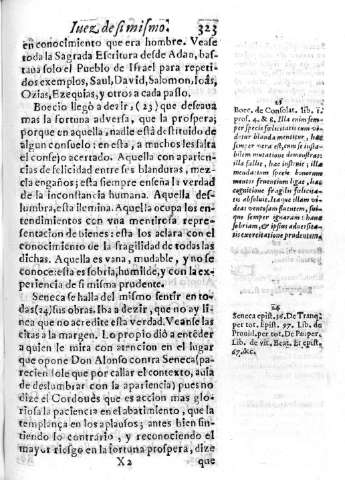 Iuez de si mismo. 323
en conocimiento que era hombre. Vease
toda la Sagrada Escritura desde Adan, bas-
taua solo el Pueblo de Israel para repeti-
dos exemplos, Saul, David, Salomon, Ioás,
Ozias, Ezequias, y otros a cada passo.
Boecio llegò a dezir, (23) que deseaua
mas la fortuna adversa, que la prospera;
porque en aquella, nadie està destituido de
algun consuelo: en esta, a muchos les falta
el consejo acertado. Aquella con aparien-
cias de felicidad entre sus blanduras, mez-
cla engaños; esta siempre enseña la verdad
de la inconstancia humana. Aquella des-
lumbra, esta ilumina. Aquella ocupa los en-
tendimientos con vna mentirosa repre-
sentacion de bienes: esta los aclara con el
conocimiento de la fragilidad de todas las
dichas. Aquella es vana, mudable, y no se
conoce: esta es sobria, humilde, y con la ex-
periencia de si misma prudente.
Seneca se halla del mismo sentir en to-
das (24) sus obras. Iba a dezir, que no ay li-
nea que no acredite esta verdad. Veanse las
citas a la margen. Lo propio diò a entēder
a quien le mira con atencion en el lugar
que opone Don Alonso contra Seneca (pa-
recien lole que por callar el contexto, auia
de deslumbrar con la apariencia) pues no
dize el Cordoués que es accion mas glo-
riosa la paciencia en el abatimiento, que la
templança en los aplausos; antes bien sin-
tiendo lo contrario, y reconociendo el
mayor riesgo en la fortuna prospera, dize
X2 que
23
Boec. de Consolat. lib. 2.
pros. 4. & 8. Illa enim sem-
per specie fœlicitatis cum vi-
detur blanda mentitur, hæc
semper vera est, cum se insta-
bilem mutatione demonstrat:
illa fallit, hæc instruit: illa
mendacium specie bonorum
mentes fruentium ligat, hæc
cognitione fragilis fœlicita-
tis absoluit. Itaque illam vi-
deas ventosam fluentem, sui-
que semper ignaram: hanc
sobriam, & ipsius adversita-
tis exercitatione prudentem.
24
Seneca epist. 16. De Tranq.
per tot. Epist. 97. Lib. de
Provid. per tot. De Prosper.
Lib. de vit. Beat. Et epist.
67. &c.